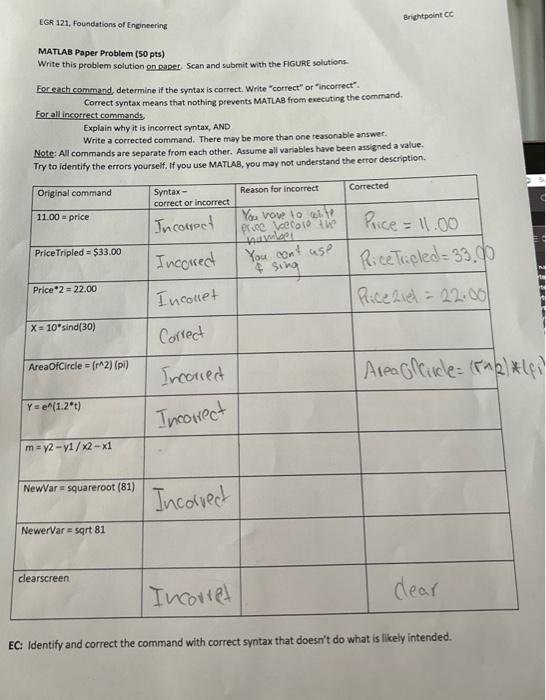 EGR 121, Foundations of Engineering
Brightpoint CC
MATLAB Paper Problem (50 pts)
Write this problem solution on paper. Scan and submit with the FIGURE solutions.
For each command, determine if the syntax is correct. Write "correct" or "incorrect".
Correct syntax means that nothing prevents MATLAB from executing the command.
For all incorrect commands,
Explain why it is incorrect syntax, AND
Write a corrected command. There may be more than one reasonable answer.
Note: All commands are separate from each other. Assume all variables have been assigned a value.
Try to identify the errors yourself. If you use MATLAB, you may not understand the error description.
Original command
Syntax –
correct or incorrect
Reason for incorrect
Corrected
11.00 = price
Incorrect
You have to write
price before the
number
Price = 11.00
PriceTripled = $33.00
Incorrect
You cont use
$ sing
PriceTripled = 33.00
Price*2 = 22.00
Incorret
= 22.00
X = 10*sind(30)
Correct
AreaOfCircle = (r^2) (pi)
Incorrect
AreaOfCircle = (r^2)*(pi)
Y = e^(1.2*t)
Incorrect
m = y2 – y1 / x2 – x1
NewVar = squareroot (81)
Incorrect
NewerVar = sqrt 81
clearscreen
Incorret
clear
EC: Identify and correct the command with correct syntax that doesn't do what is likely intended.